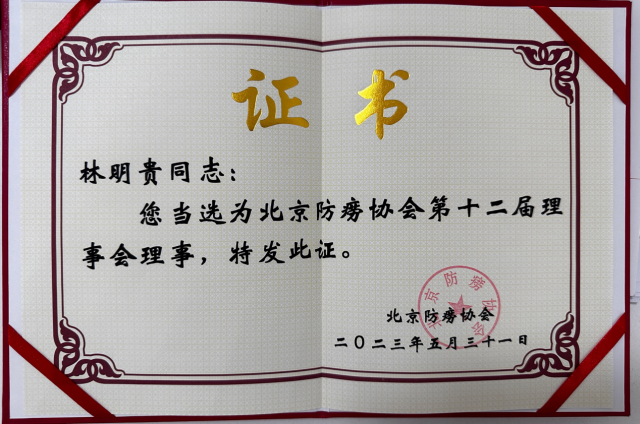 证书
林明贵同志：
您当选为北京防痨协会第十二届理
事会理事，特发此证。
北京防痨协会
北京防痨协会
二〇二三年五月三十一日